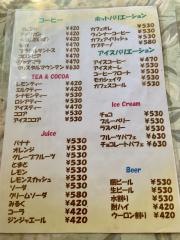 コーヒー
¥420
¥420
¥420
¥420
¥420
クリスタルマウンテン ¥520
TEA & COCOA
レモンティー ¥420
ミルクティー ¥420
ロシアンティー ¥520
アイスティー ¥420
ココア ¥420
アイスココア ¥520
Juice
バナナ ¥530
オレンジ ¥530
グレープフルーツ ¥530
とまと ¥530
レモン ¥530
レモンスカッシュ ¥530
ソーダ ¥530
クリームソーダ ¥530
みるく ¥420
コーラ ¥420
ジンジャエール ¥420
ホットバリエーション
カフェオレ ¥530
ウィンナーコーヒー ¥530
アイスバリエーション
アイスコーヒー ¥420
アイスオーレ ¥530
コーヒーフロート ¥530
モカフラッペ
カフェスコール
Ice Cream
チョコ ¥530
ブルーベリー ¥530
ラズベリー ¥530
フルーツパフェ ¥630
チョコレートパフェ ¥630
Beer
瓶ビール ¥530
生ビール ¥530
水割り ¥530
酎ハイ ¥420
ウーロン割り ¥420